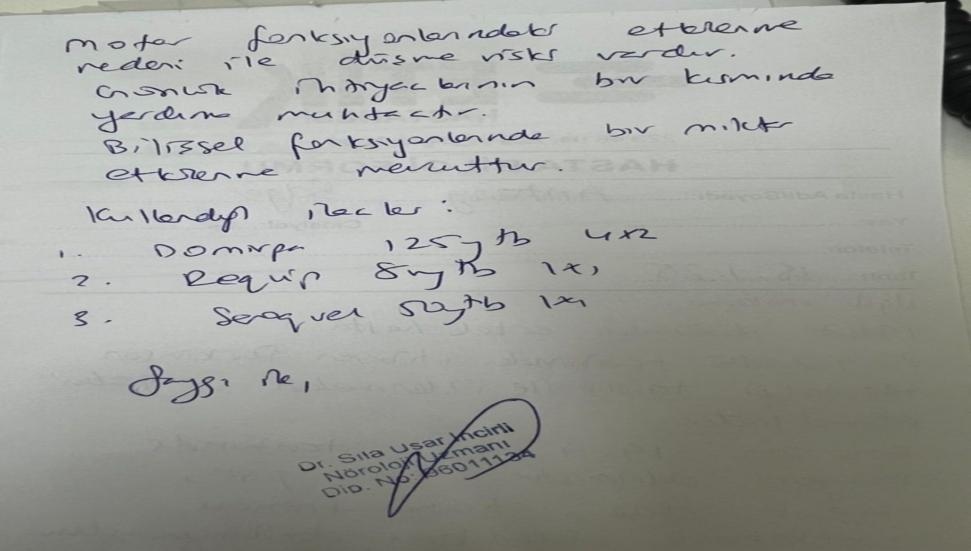 motor fonksiyonlarındaki etkilenme
nedeni ile düşme riski vardır.
Günlük ihtiyaclarının bir kısmında
yardıma muhtactır.
Bilişsel fonksiyonlarında bir miktar
etkilenme mevcuttur.
Kullandığı ilaclar:
1. Domirpa 125mg tb 4x2
2. Requip 8mg tb 1x1
3. Seroquel 50mg tb 1x1
Saygı ile,
Dr. Sıla Usar İncirli
Nöroloji Uzmanı
Dip. No:
HASTA